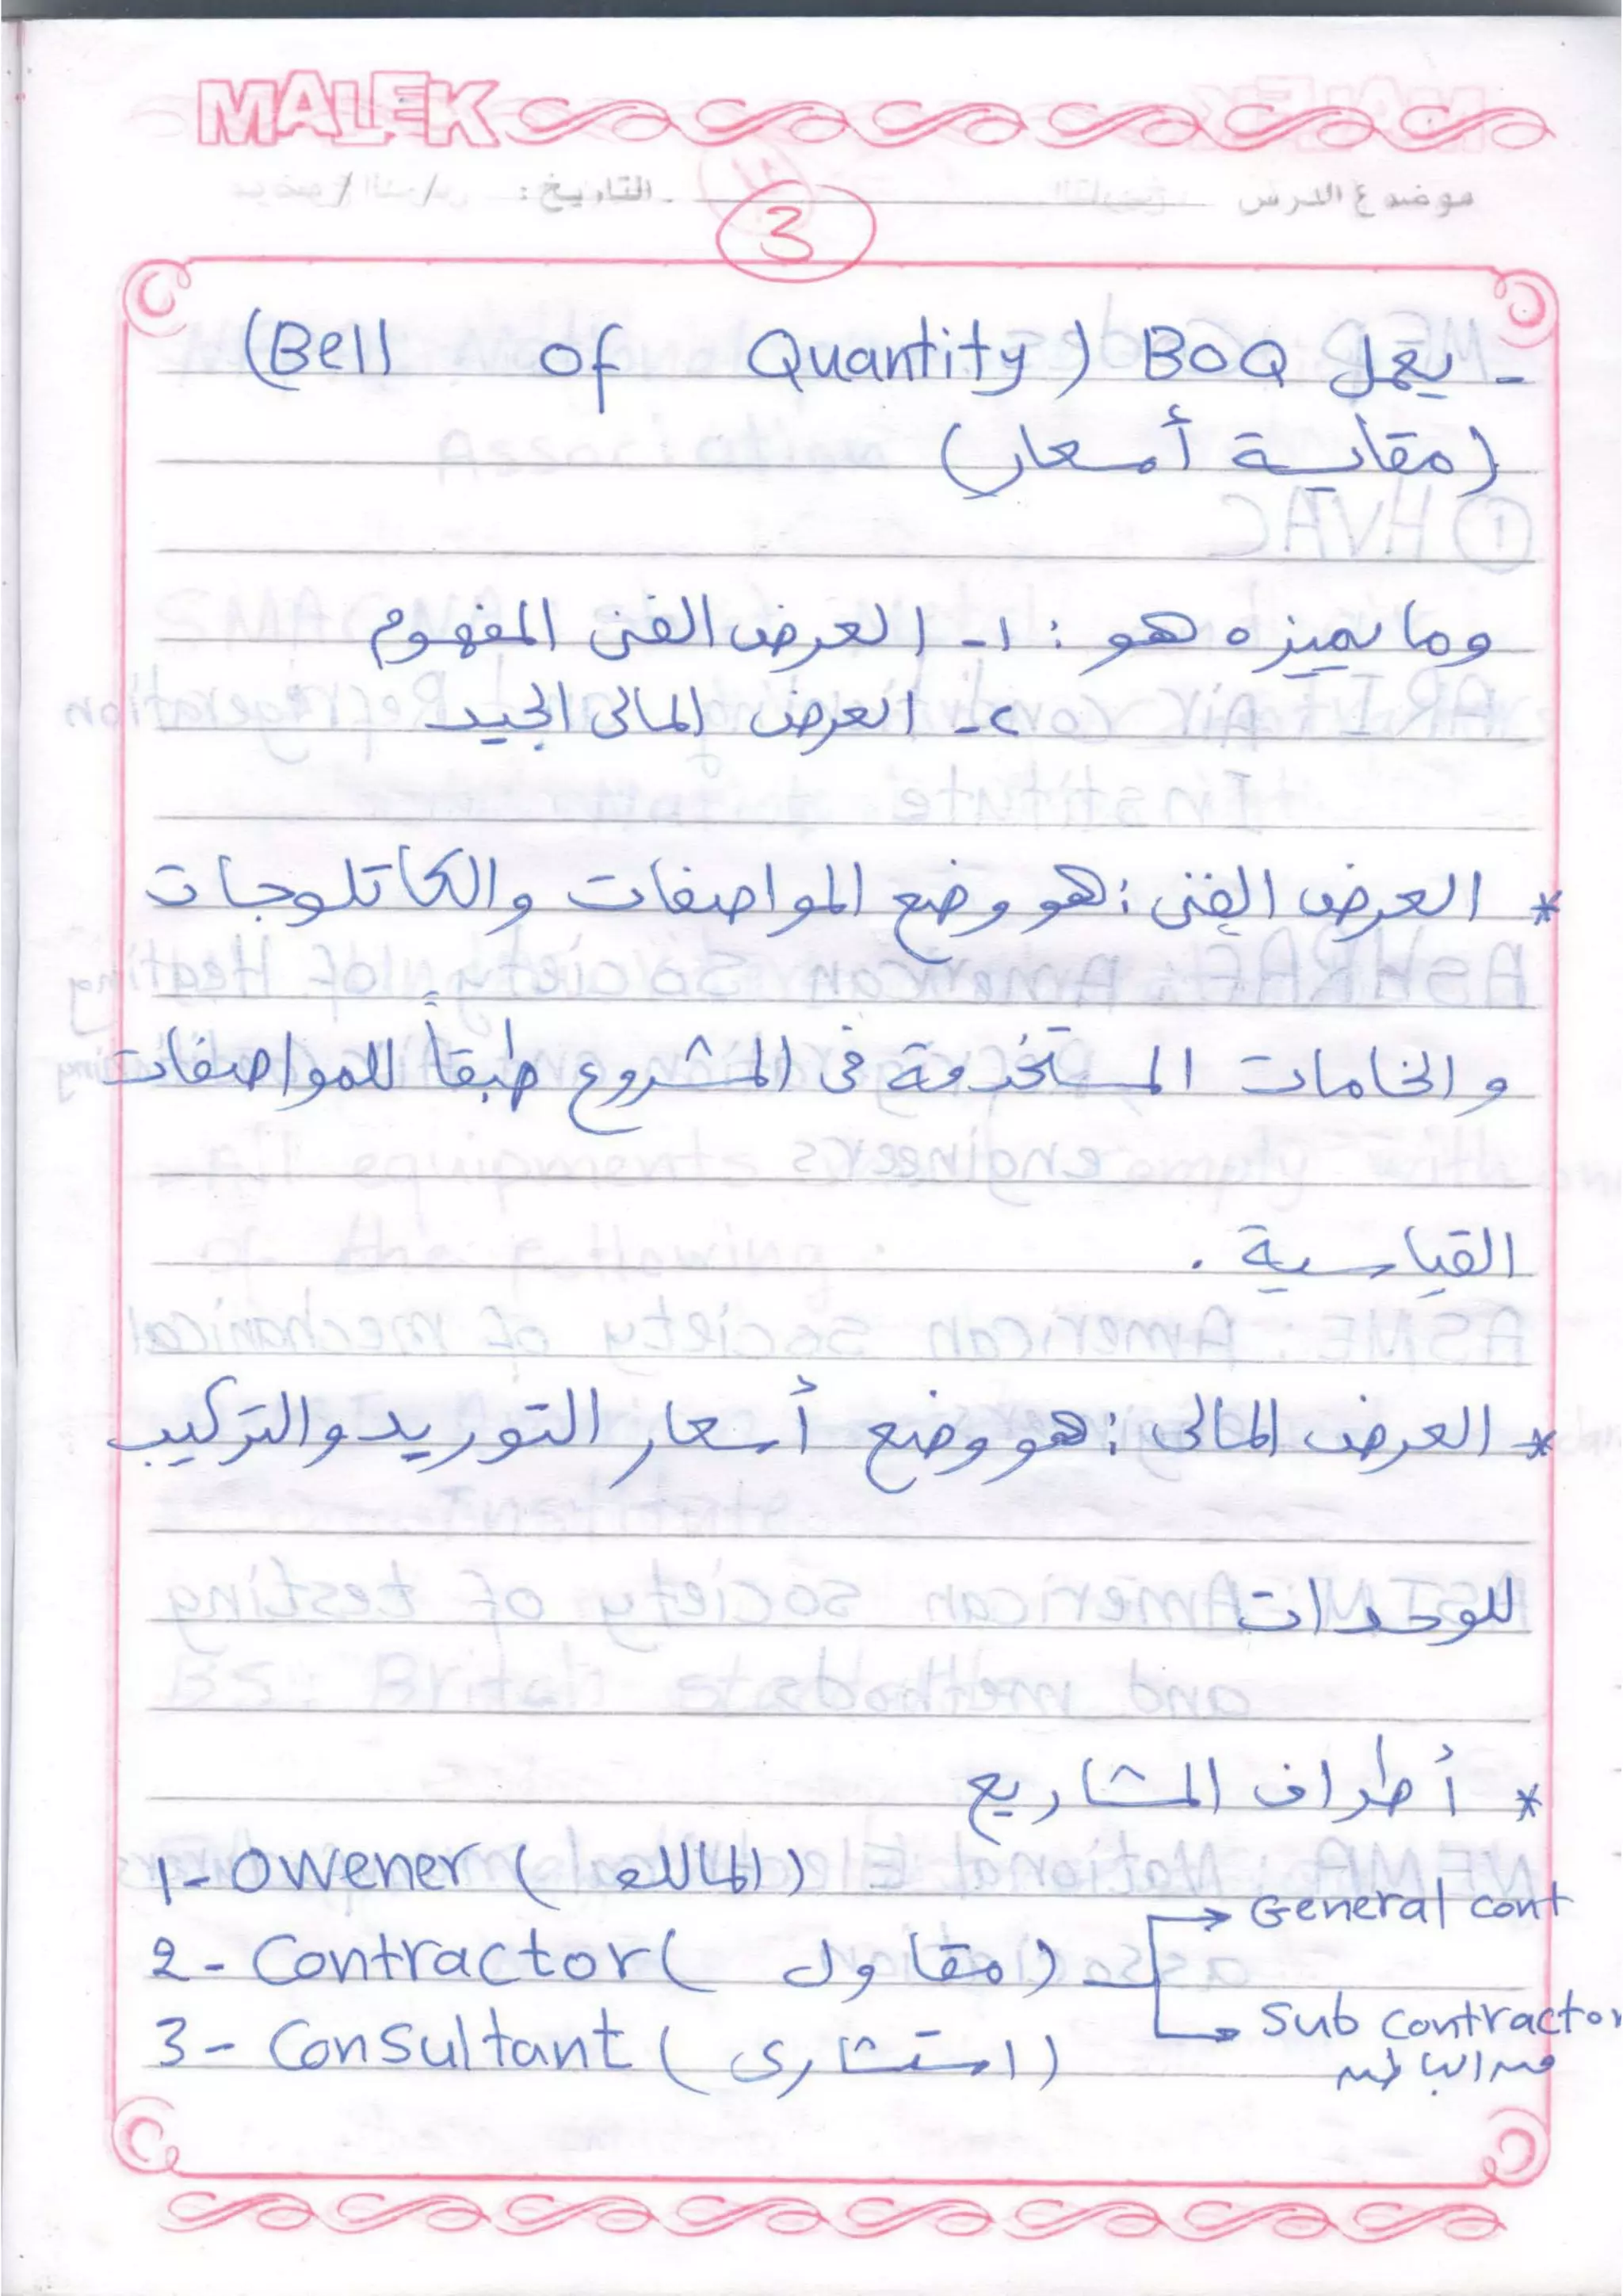 MALEK
موضوع الدرس التاريخ: / /
3
- يعمل BOQ (Bell of Quantity)
(مقايسة أسعار)
وما يميزه هو : ١- العرض الفنى المفهوم
٢- العرض المالى الجيد
* العرض الفنى : هو وضع المواصفات والكاتلوجات
والخامات المستخدمة فى المشروع طبقاً للمواصفات
القياسية .
* العرض المالى : هو وضع أسعار التوريد والتركيب
للوحدات
* أطراف المشاريع
1- Owener (المالك)
General cont
2- Contractor (مقاول)
Sub contractor
3- Consultant (استشارى)
من الباطن